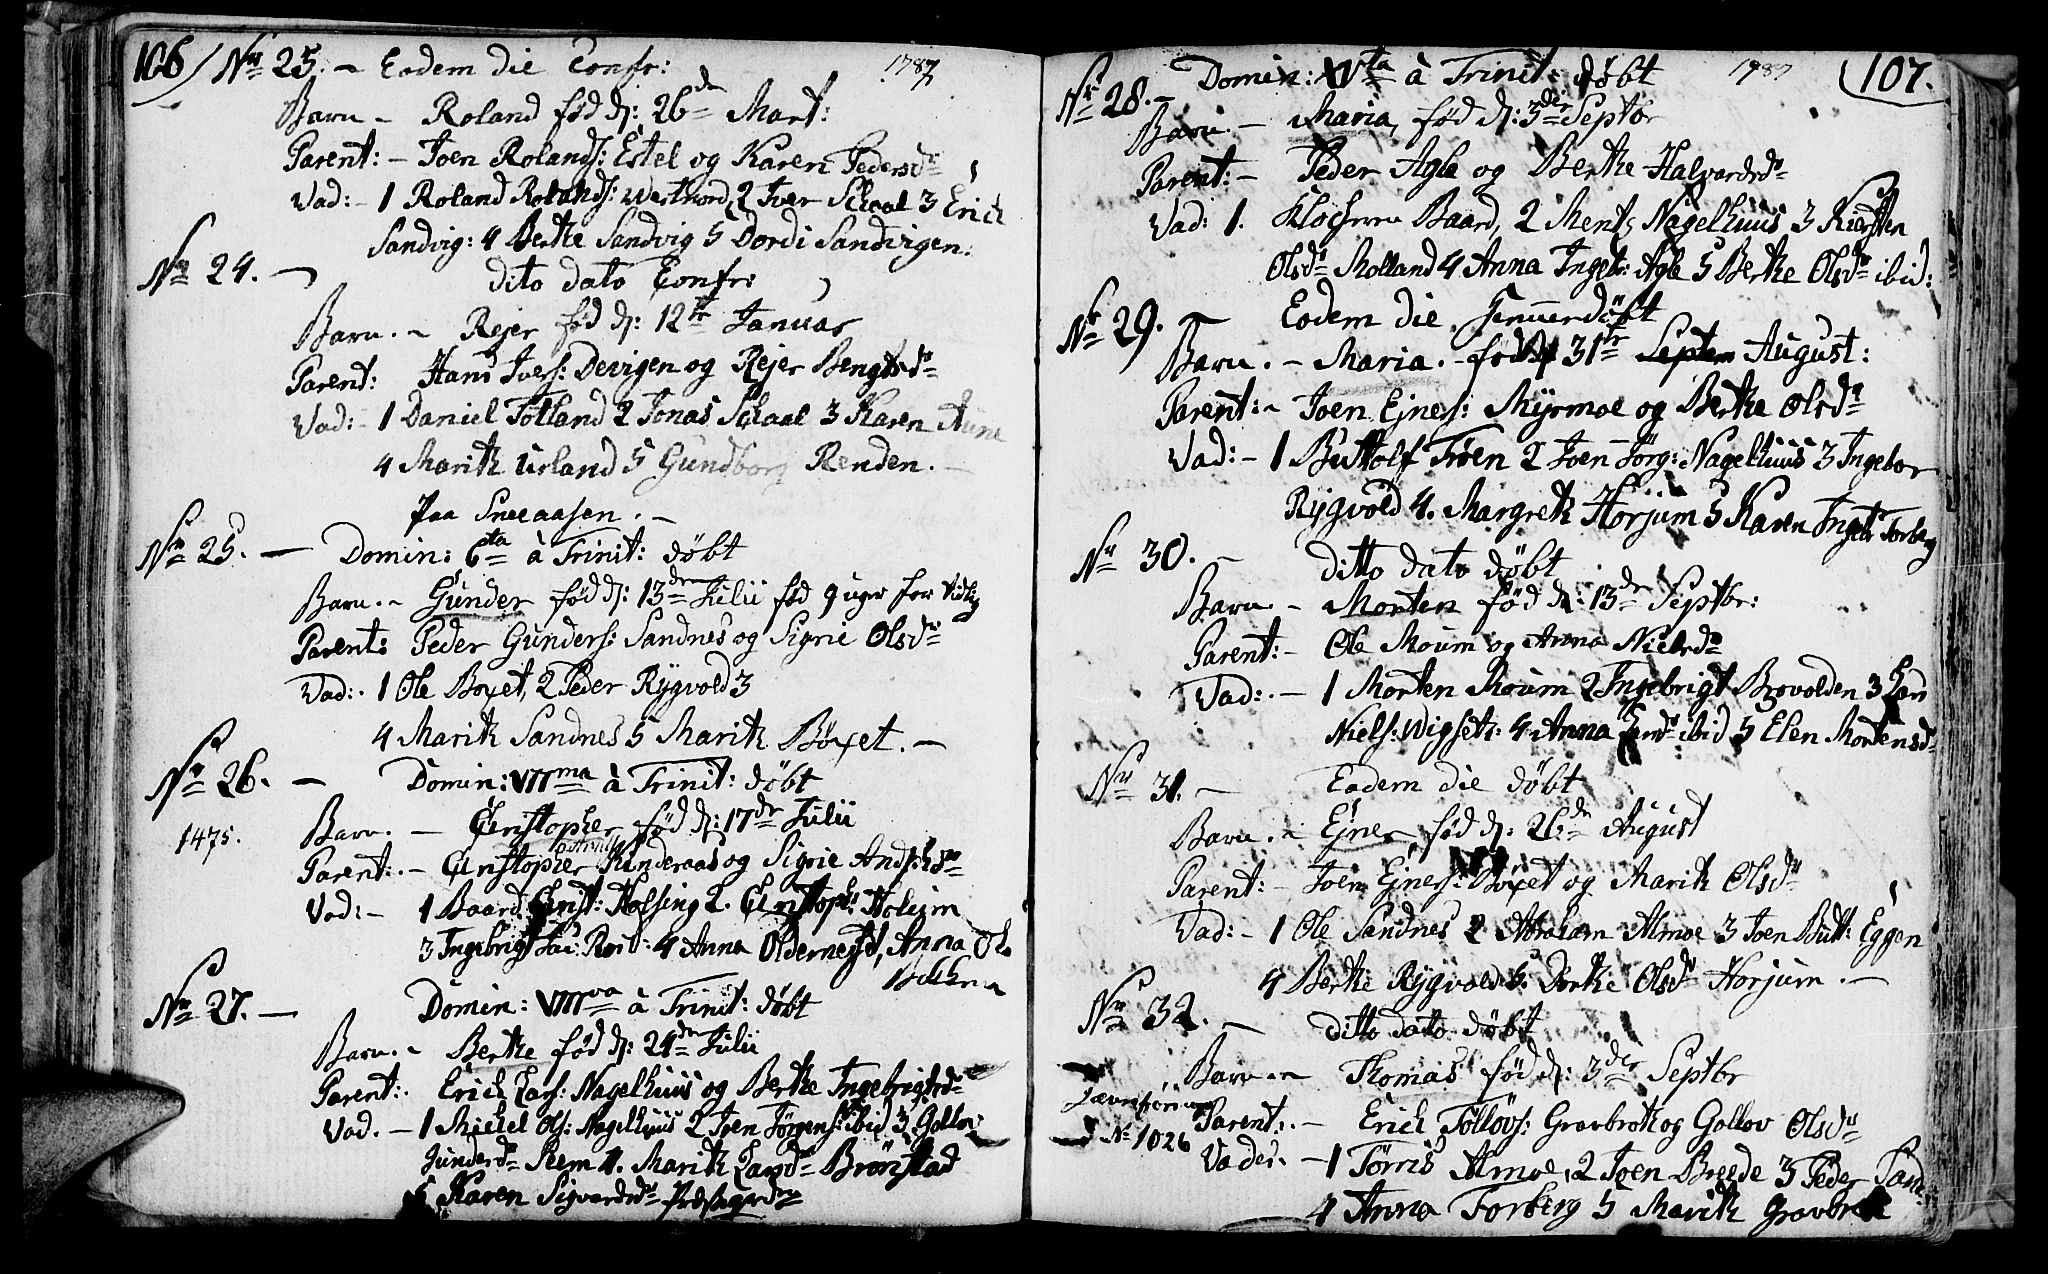 106/ No 25. - Eodem die Confr: 1787
Barn - Roland fød d: 26de Mart:
Parent: - Joen Rolands: Estel og Karen Pedersdr
Vad: - 1 Roland Rolands: Westnord, 2 Iver Schaal 3 Erich
Sandvig: 4 Berthe Sandvig 5 Dordi Sandvigen.
Nr 24. - dito dato Confr:
Barn. - Rejer fød d: 12te Januar
Parent: Hans Ivers: Devigen og Rejer Bengtsdr
Vad: - 1 Daniel Totland 2 Jonas Schaal 3 Karen Aune
4 Marith Urland 5 Gundborg Renden. -
Paa Sneeaasen. -
Nr 25. - Domin: 6ta à Trinit: døbt
Barn. - Gunder fød d: 13de Julii fød 9 uger for
Parent: Peder Gunders: Sandnes og Sigrie Olsdr
Vad: - 1 Ole Boxet, 2 Peder Rygvold 3
4 Marith Sandnes 5 Marith Bøxet. -
Nr 26. - Domin: VIIma à Trinit: døbt
1475. Barn. - Christopher fød d: 17de Julii
Parent: - Christopher Kinderaas og Sigrie
Vad: - 1 Baard Christ: Holsing 2. Christoph: Holejm
3 Ingebrigt 4 Anna Oldernejd, Anna Ols
Nr 27. - Domin: VIIIva à Trinit: døbt
Barn. - Berthe fød d: 24de Julii
Parent: Erich Lars: Nagelhuus og Berthe Ingebrigtsdr
Vad. - 1 Michel Ols: Nagelhuus 2 Joen Jørgens: ibid 3 Gollov
Gundersdr Seem 4. Marith Larsdr Brønstad
5 Karen Sigvardsdr
Nr 28. - Domin: XVta à Trinit: døbt 1787 107.
Barn. - Maria, fød d: 3die Septbr
Parent: - Peder Agle og Berthe Halvardsdr
Vad: 1. Baard, 2 Mentz Nagelhuus 3 Kiersten
Olsdr Molland 4 Anna Ingebr: Agle 5 Berthe Olsdr ibid:
Nr 29. - Eodem die hiemmedøbt
Barn. - Maria. - fød d 31te Septem August:
Parent: - Joen Ejners: Myrmoe og Berthe Olsdr
Vad: - 1 Buttolf Trøen 2 Joen Jørg: Nagelhuus 3 Ingebor
Rygvold 4. Margreth Horjum 5 Karen Ingebr Forberg
Nr 30. - Ditto dato døbt
Barn - Morten fød d: 13de Septbr:
Parent: - Ole Moum og Anna Nielsdr
Vad: - 1 Morten Moum 2 Ingebrigt Brovolden 3 Lars
Niels: Wigseth: 4 Anna Larsdr ibid 5 Elen Mortensdr
Nr 31. - Eodem die døbt
Barn. - Ejner fød d: 26de August
Parent: - Joen Ejners: Boxet og Marith Olsdr
Vad: - 1 Ole Sandnes 2 Abraham Almoe 3 Joen Butt: Eggen
4 Berthe Rygvold 5. Dorthe Olsdr Horjum. -
Nr 32. - Ditto dato døbt
Barn. - Thomas fød d: 3die Septbr
Parent: - Erich Tolløvs: Gravbroth og Gollov Olsdr
No 1026 Vader. - 1 Tørris Almoe, 2 Joen Breede 3 Peder Sand:
4 Anna Forberg 5 Marith Gravbroth